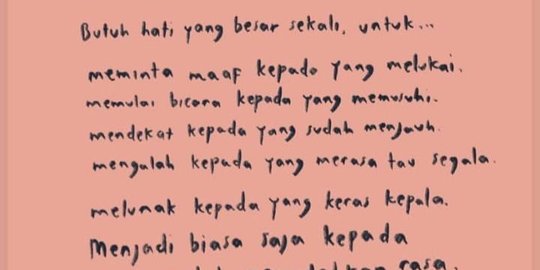 Butuh hati yang besar sekali, untuk...
meminta maaf kepada yang melukai.
memulai bicara kepada yang memusuhi.
mendekat kepada yang sudah menjauh.
mengalah kepada yang merasa tau segala.
melunak kepada yang keras kepala.
Menjadi biasa saja kepada
rasa.